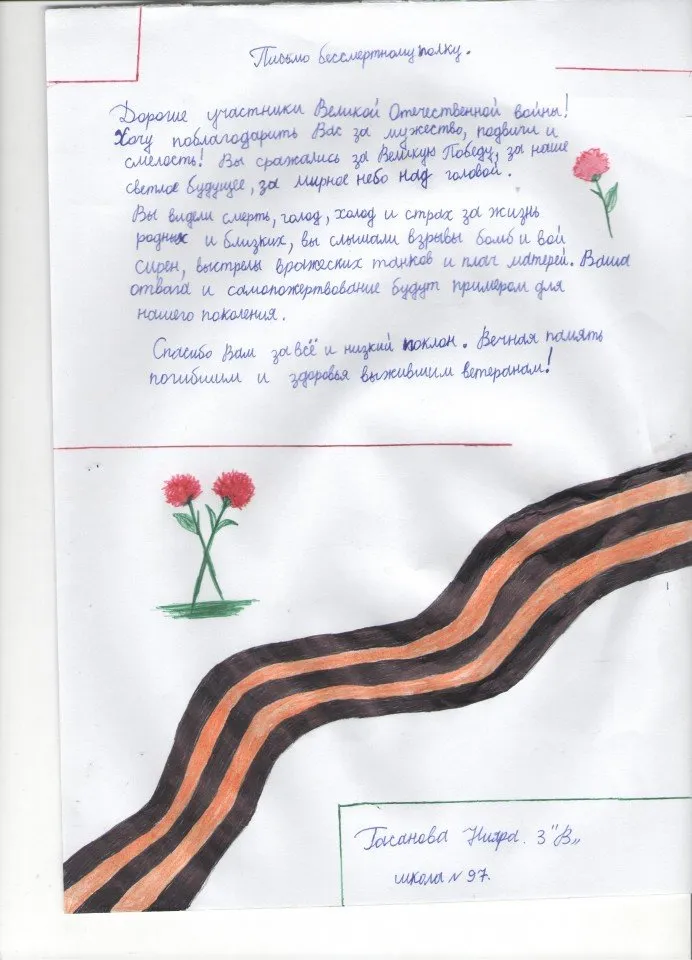 Письмо бессмертному полку.
Дорогие участники Великой Отечественной войны!
Хочу поблагодарить Вас за мужество, подвиги и
смелость! Вы сражались за Великую Победу, за наше
светлое будущее, за мирное небо над головой.
Вы видели смерть, голод, холод и страх за жизнь
родных и близких, вы слышали взрывы бомб и вой
сирен, выстрелы вражеских танков и плач матерей. Ваша
отвага и самопожертвование будут примером для
нашего поколения.
Спасибо Вам за всё и низкий поклон. Вечная память
погибшим и здоровья выжившим ветеранам!
Гасанова Нияра. 3 "В„
школа № 97.